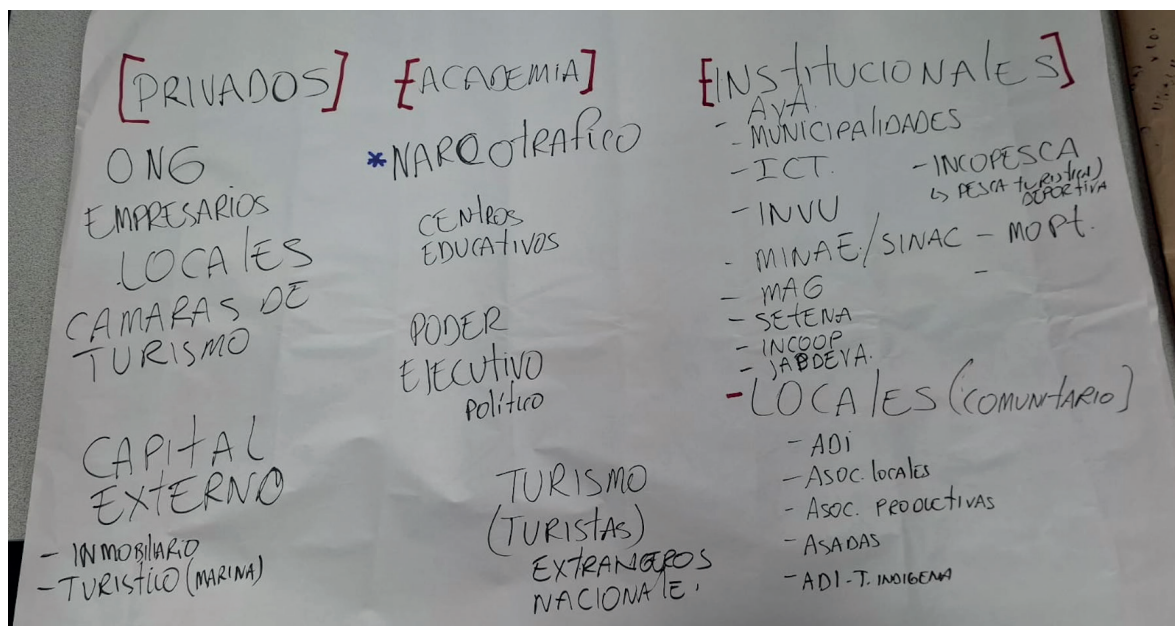 [PRIVADOS]
ONG
EMPRESARIOS
LOCALES
CAMARAS DE
TURISMO
CAPITAL
EXTERNO
- INMOBILIARIO
- TURISTICO (MARINA)
[ACADEMIA]
* NARCOTRAFICO
CENTROS
EDUCATIVOS
PODER
EJECUTIVO
POLÍTICO
TURISMO
(TURISTAS)
EXTRANGEROS
NACIONALE.
[INSTITUCIONALES]
- AYA.
- MUNICIPALIDADES
- ICT.
- INVU
- MINAE/SINAC
- MAG
- SETENA
- INCOOP
- JAPDEVA.
- INCOPESCA
↳ PESCA TURISTICA)
DEPORTIVA
- MOPT.
-
- LOCALES (COMUNITARIO)
- ADI
- ASOC. LOCALES
- ASOC. PRODUCTIVAS
- ASADAS
- ADI-T. INDIGENA